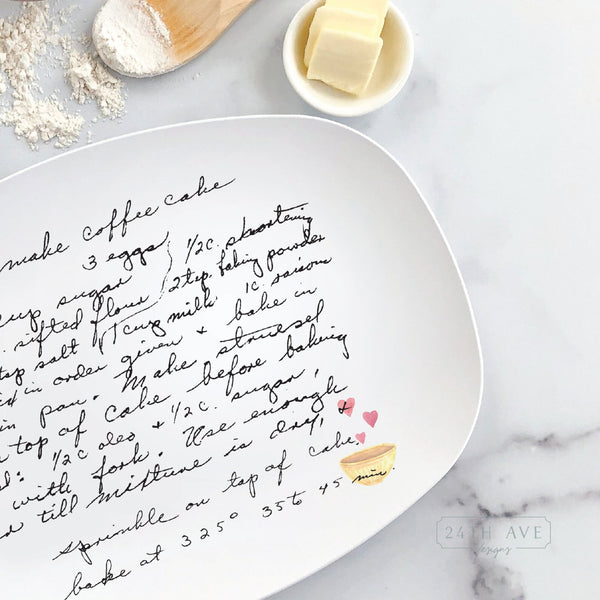 make coffee cake
3 eggs 1/2 c. shortening
cup sugar 2 tsp. baking powder
sifted flour 1c. raisons
tsp salt 1 cup milk
in order given & bake in
in pan. Make struesel
top of cake before baking
1/2 c oleo + 1/2 c. sugar,
with fork. Use enough
till mixture is dry, &
sprinkle on top of cake.
bake at 325° 35 to 45 min.
24TH AVE
designs